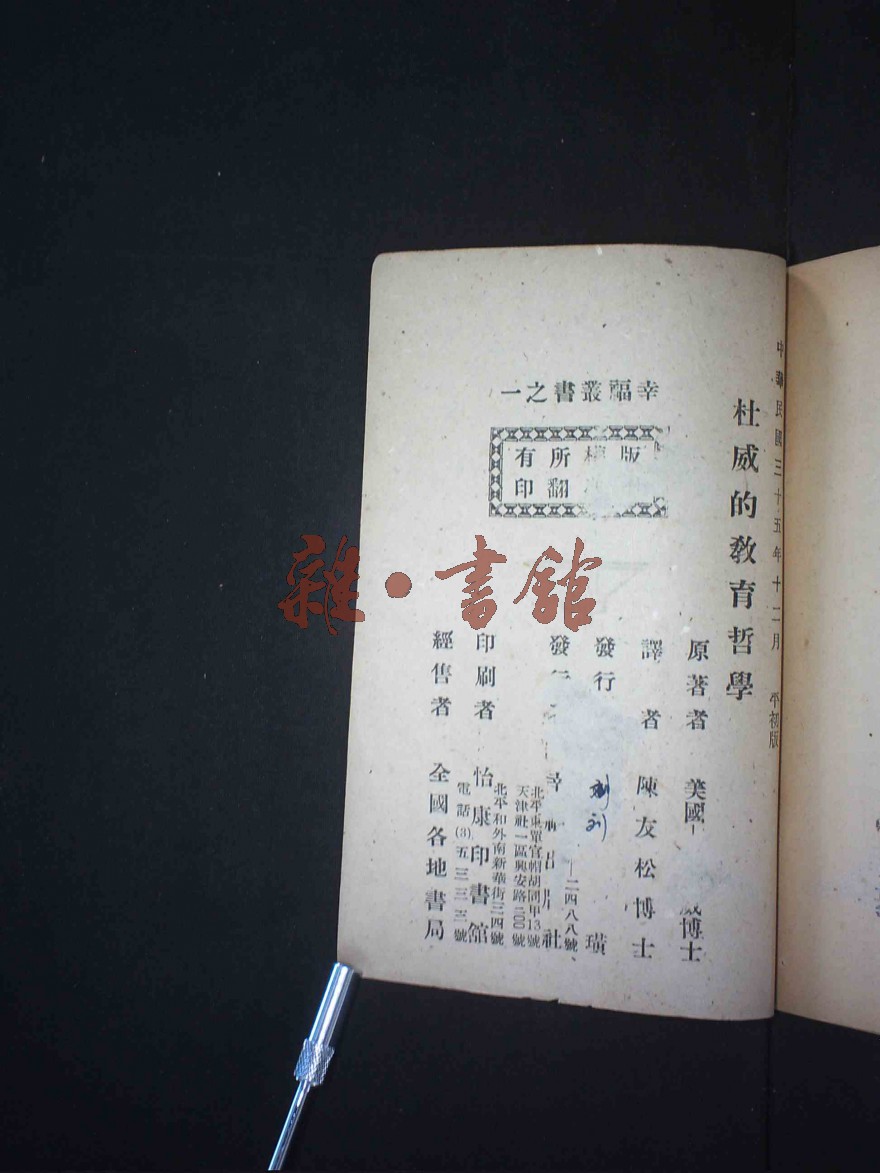 中華民國三十五年十二月　平初版
杜威的教育哲學
原著者　美國　威博士
譯者　陳友松博士
發行　璜
發　社
二四八八號、
北平東單官帽胡同甲13號
天津社一區興安路二〇〇號
印刷者　怡康印書館
北平和外南新華街三四號
電話(3)五三三三號
經售者　全國各地書局
幸福叢書之一
版權所有
翻印
雜·書館